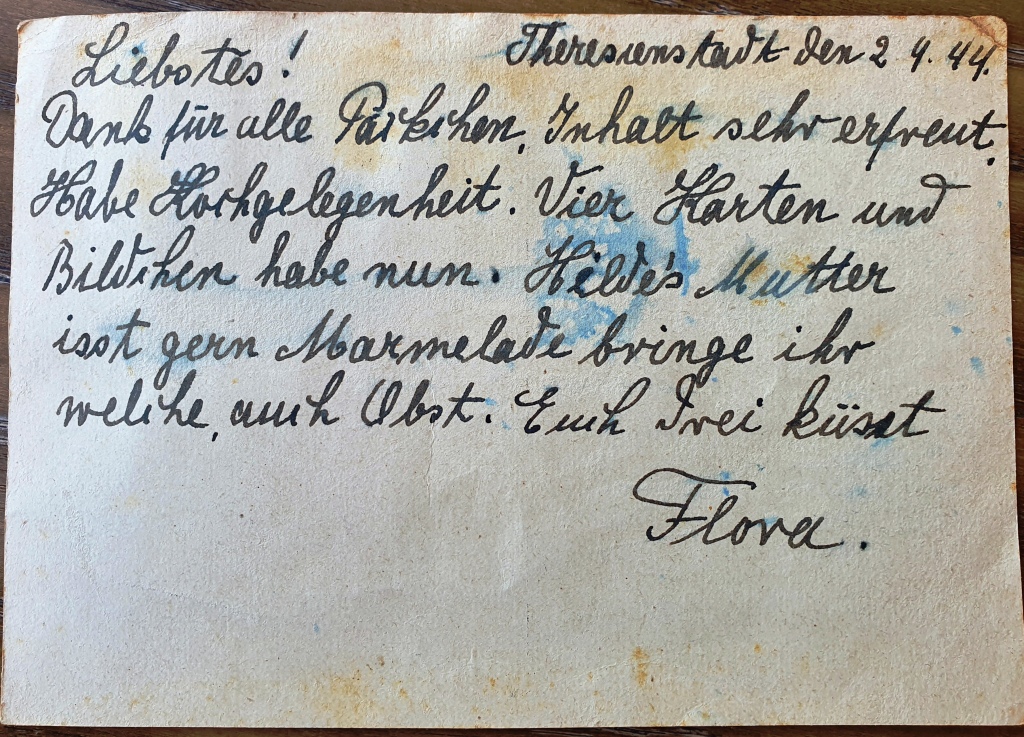 Liebstes! Theresienstadt den 2. 4. 44.
Dank für alle Päckchen, Inhalt sehr erfreut.
Habe Kochgelegenheit. Vier Karten und
Bildchen habe nun. Hilde's Mutter
isst gern Marmelade bringe ihr
welche, auch Obst. Euch Drei küsst
Flora.